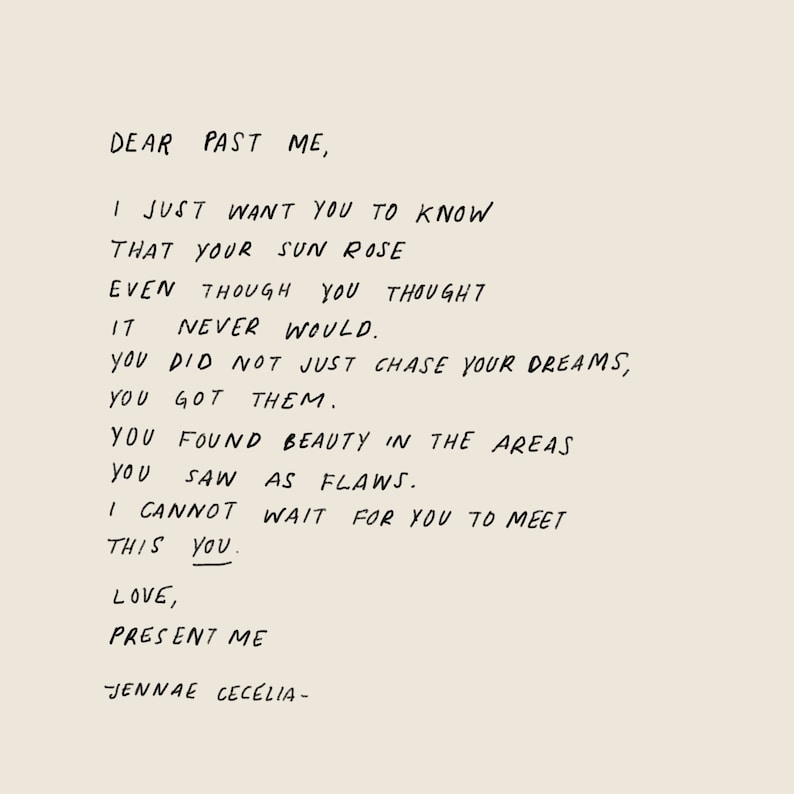 DEAR PAST ME,
I JUST WANT YOU TO KNOW
THAT YOUR SUN ROSE
EVEN THOUGH YOU THOUGHT
IT NEVER WOULD.
YOU DID NOT JUST CHASE YOUR DREAMS,
YOU GOT THEM.
YOU FOUND BEAUTY IN THE AREAS
YOU SAW AS FLAWS.
I CANNOT WAIT FOR YOU TO MEET
THIS YOU.
LOVE,
PRESENT ME
-JENNAE CECÉLIA-